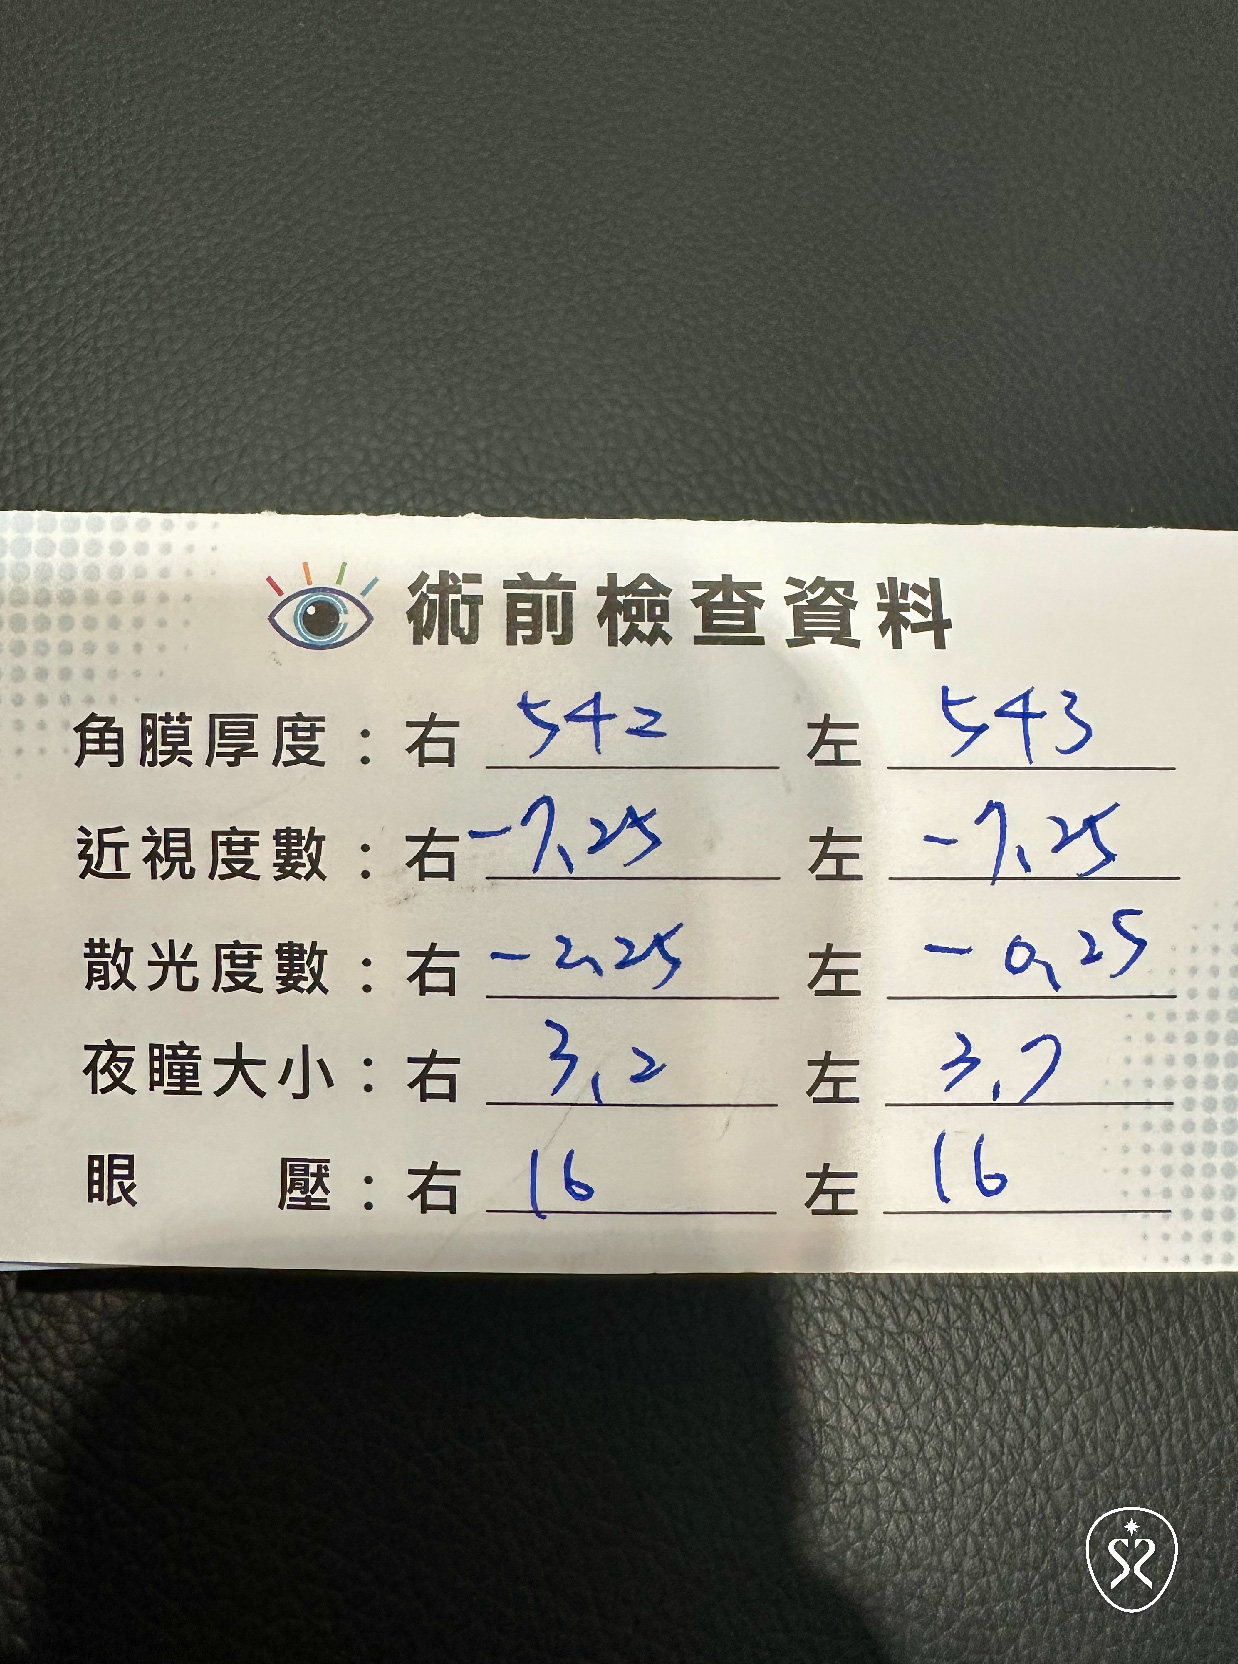 術前檢查資料
角膜厚度：右 542 左 543
近視度數：右 -7.25 左 -7.25
散光度數：右 -2.25 左 -0.25
夜瞳大小：右 3.2 左 3.7
眼壓：右 16 左 16